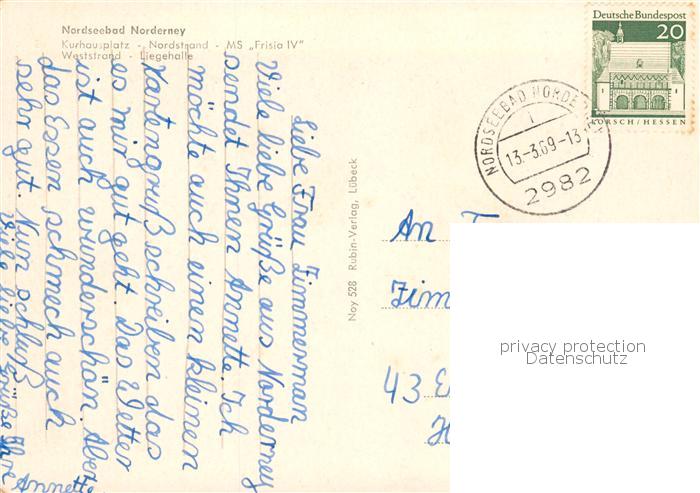 Nordseebad Norderney
Kurhausplatz - Nordstrand - MS „Frisia IV"
Weststrand - Liegehalle
Deutsche Bundespost
20
LORSCH/HESSEN
NORDSEEBAD NORDERNEY
13.-3.69-13
2982
Liebe Frau Zimmerman
Viele liebe Grüße aus Norderney
sendet Ihnen Annette. Ich
möchte auch einen kleinen
Kartengruß schreiben das
es mir gut geht. Das Wetter
ist auch wunderschön. Aber
das Essen schmeck auch
sehr gut. Nun schluß
Viele liebe Grüße Ihre
Annette
Noy 528 Rubin-Verlag, Lübeck
An
Zim
43 E
privacy protection
Datenschutz